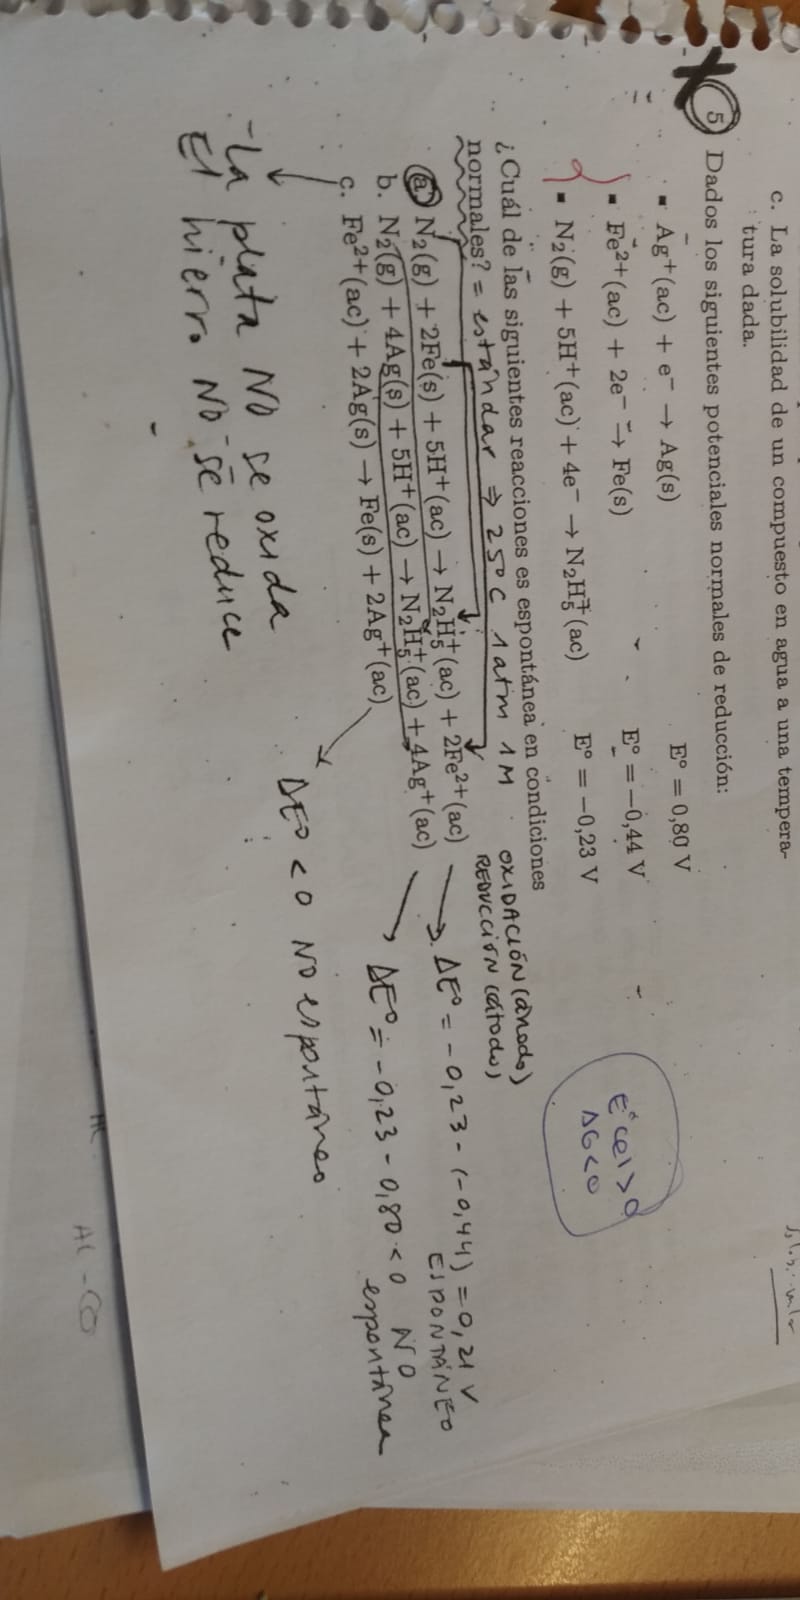 c. La solubilidad de un compuesto en agua a una tempera-
tura dada.
5. Dados los siguientes potenciales normales de reducción:
▪ Ag⁺(ac) + e⁻ → Ag(s) E° = 0,80 V
▪ Fe²⁺(ac) + 2e⁻ → Fe(s) E° = −0,44 V
▪ N₂(g) + 5H⁺(ac) + 4e⁻ → N₂H₅⁺(ac) E° = −0,23 V
E° cel > 0
ΔG < 0
¿Cuál de las siguientes reacciones es espontánea en condiciones
normales? = estándar ⇒ 25°C 1 atm 1 M
OXIDACIÓN (ánodo)
REDUCCIÓN (cátodo)
a. N₂(g) + 2Fe(s) + 5H⁺(ac) → N₂H₅⁺(ac) + 2Fe²⁺(ac) → ΔE° = −0,23 − (−0,44) = 0,21 V
ESPONTÁNEO
b. N₂(g) + 4Ag(s) + 5H⁺(ac) → N₂H₅⁺(ac) + 4Ag⁺(ac) → ΔE° = −0,23 − 0,80 < 0 NO
espontánea
c. Fe²⁺(ac) + 2Ag(s) → Fe(s) + 2Ag⁺(ac)
ΔE° < 0 NO espontáneo
- La plata NO se oxida
El hierro NO se reduce